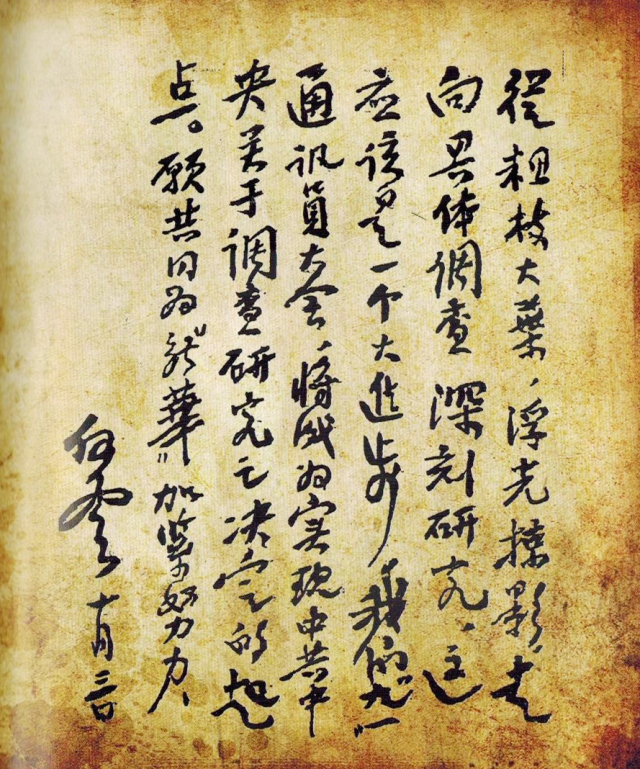 從粗枝大葉、浮光掠影、走
向具体調查 深刻研究、这
应该是一个大進步、我们"九一"
通訊員大会、将成为实現中共中
央关于調查研究之决定的起
点。願共同为"華"加紧努力、
何云 十月三日